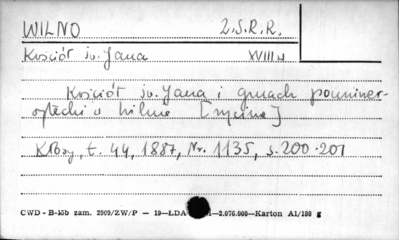 WILNO Z.S.R.R.
Kościół św. Jana XVIII w
Kościół św. Jana i gmach pouniwer-
sytecki w Wilnie [rycina]
Kłosy, t. 44, 1887, Nr. 1135, s. 200-201
CWD - B-15b zam. 2909/ZW/P — 19—ŁDA 1—2.076.000—Karton A1/180 g